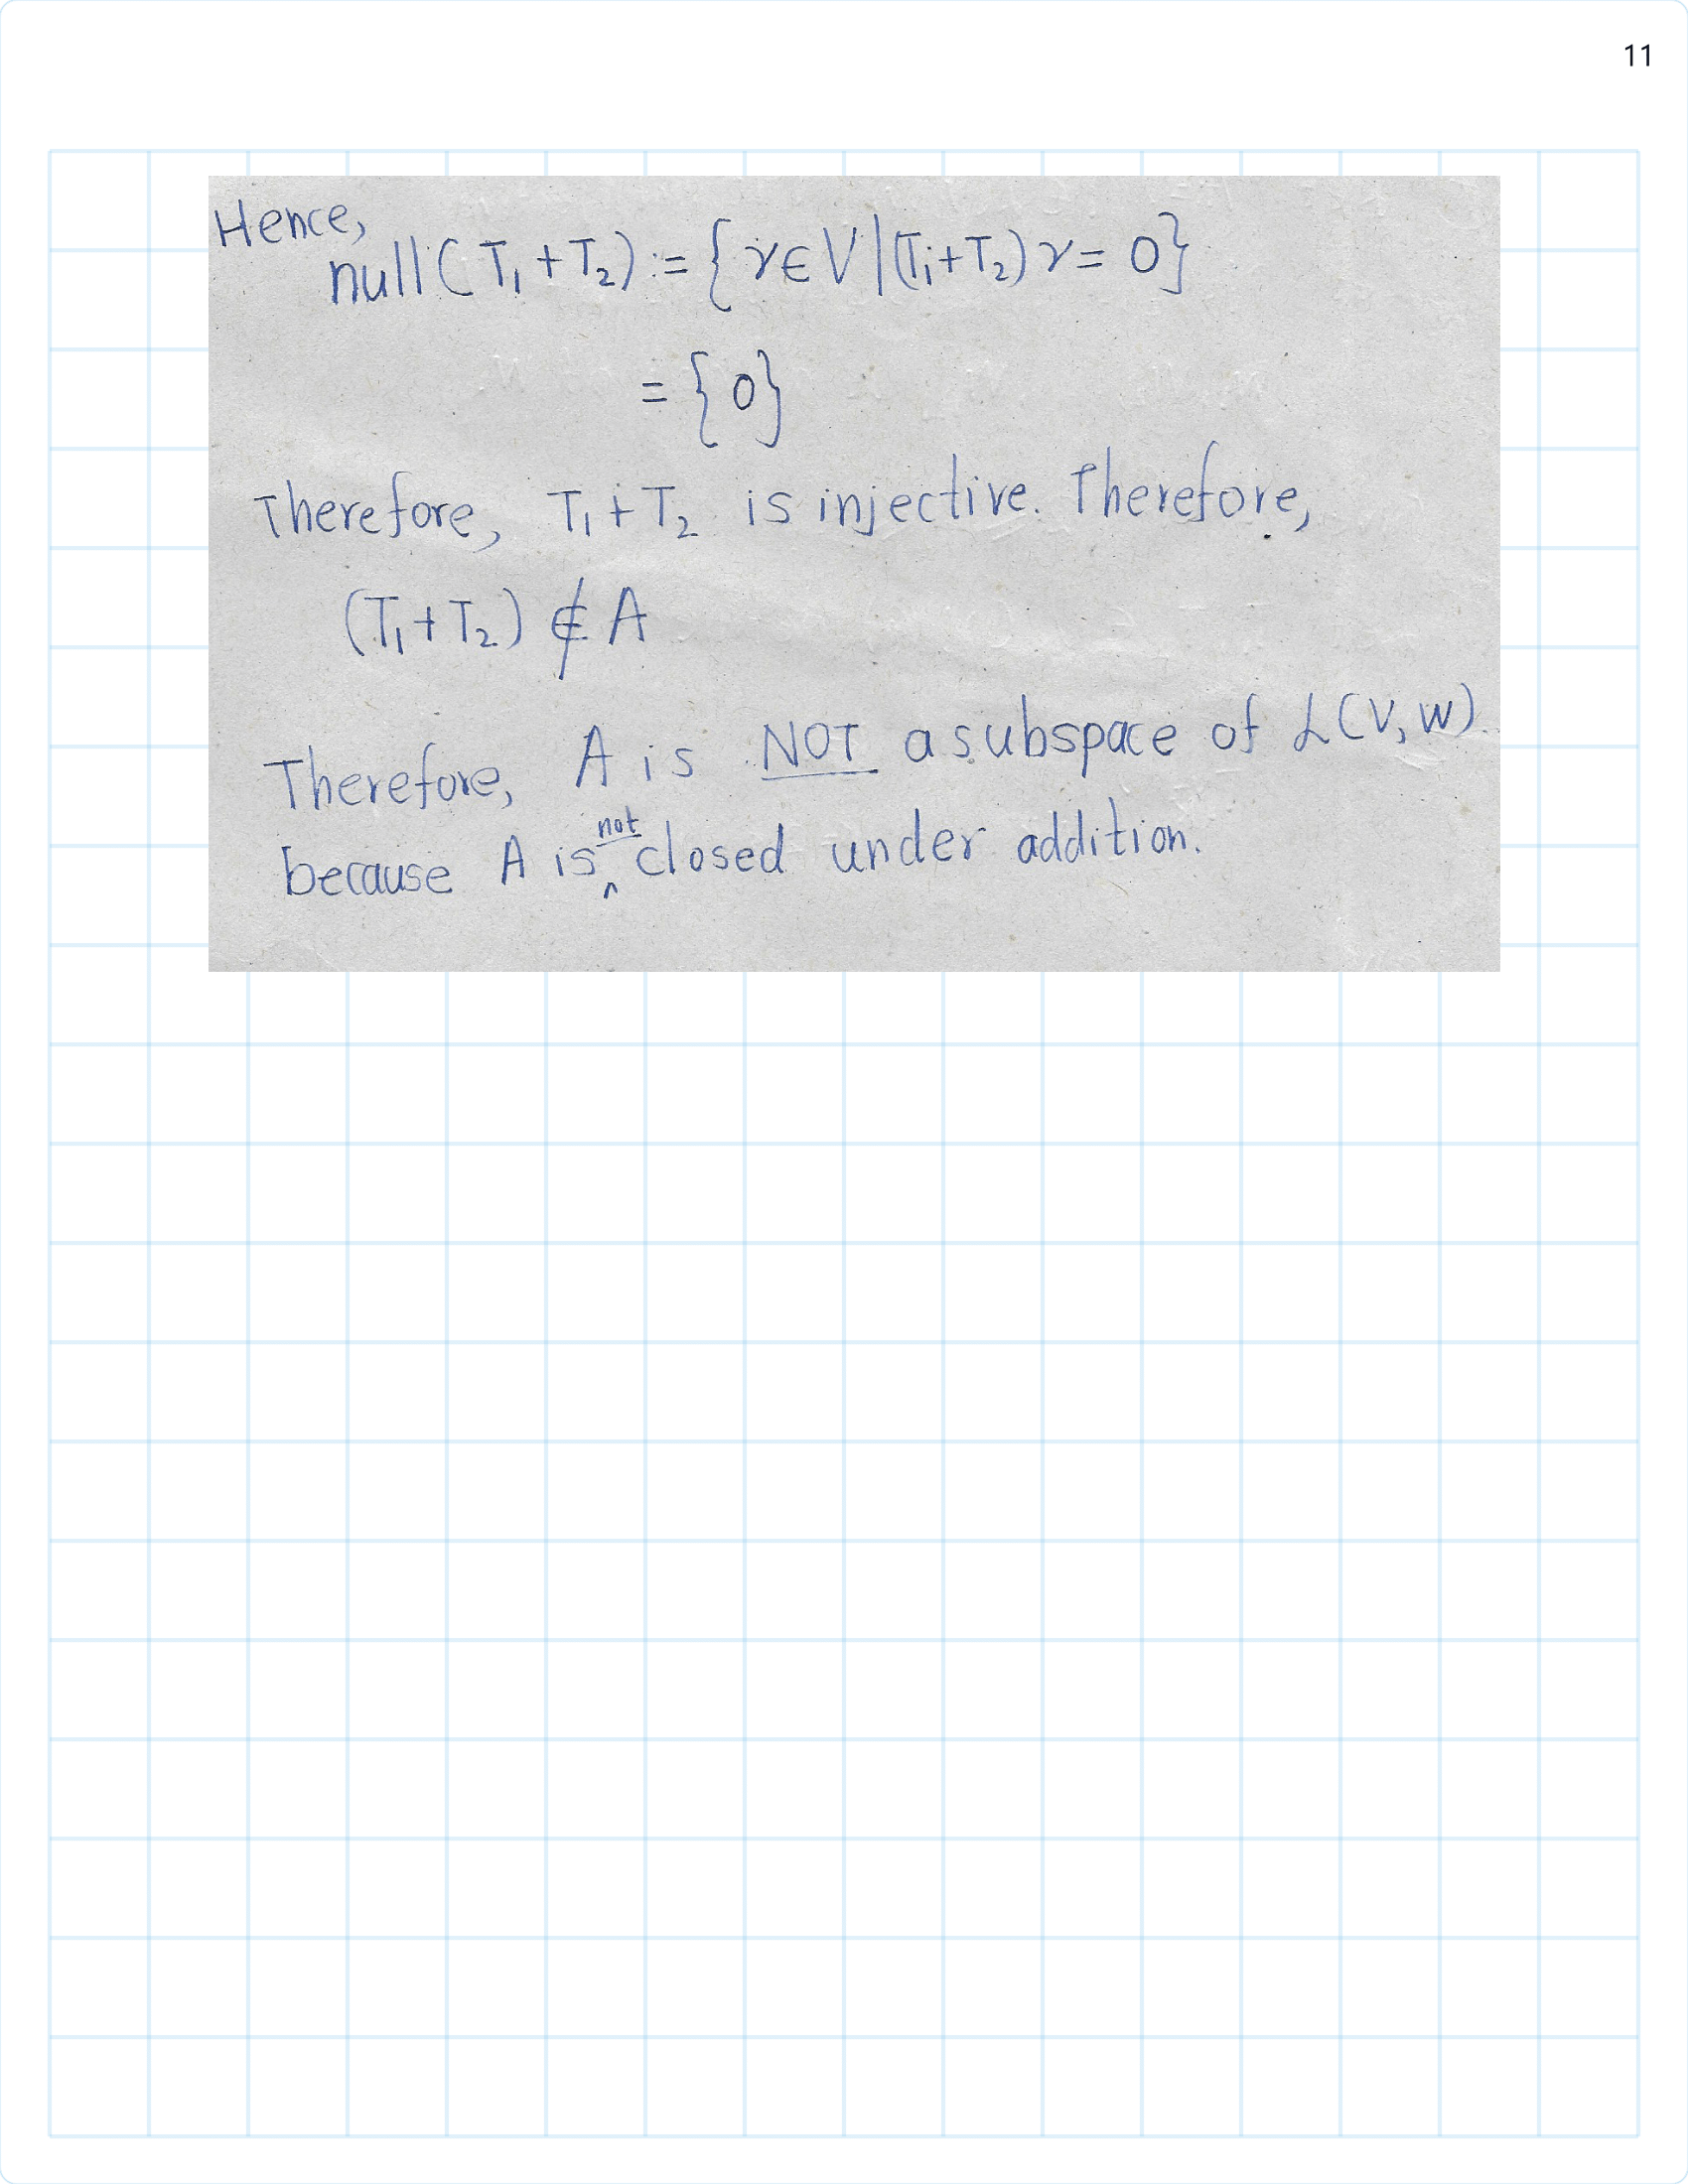 11
Hence,
null(T₁+T₂) := {v∈V|(T₁+T₂)v= 0}
= {0}
Therefore, T₁+T₂ is injective. Therefore,
(T₁+T₂) ∉ A
Therefore, A is NOT a subspace of ℒ(V,W).
because A is not closed under addition.